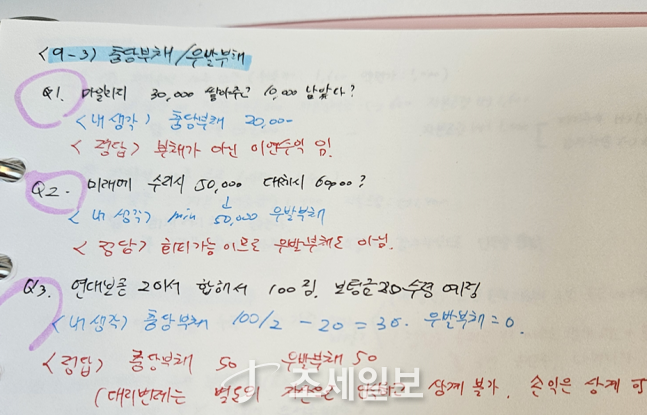 <9-3> 충당부채/우발부채
Q1. 마일리지 30,000 쌓아주고 10,000 남았다?
<내 생각> 충당부채 20,000-
<정답> 부채가 아닌 이연수익 임!
Q2. 미래에 수리시 50,000 대체시 60,000?
<내 생각> min 50,000 우발부채
<정답> 회피가능 이므로 우발부채도 아님.
Q3. 연대보증 2이서 합해서 100 짐. 보험금 20 수령 예정
<내 생각> 충당부채 100/2 - 20 = 30. 우발부채 = 0.
<정답> 충당부채 50 우발부채 50
(대리변제는 별도의 자산으로 상계 불가. 손익은 상계 가
조세일보